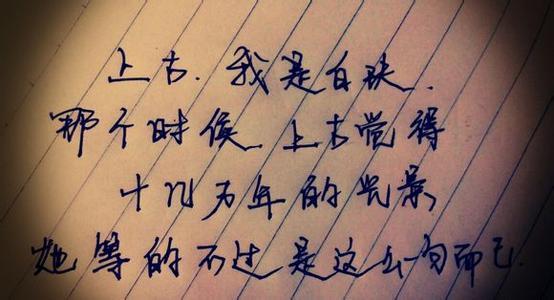 上古.我是白玦.
那个时候.上古觉得
十几万年的光景
她等的不过是这么一句而已.